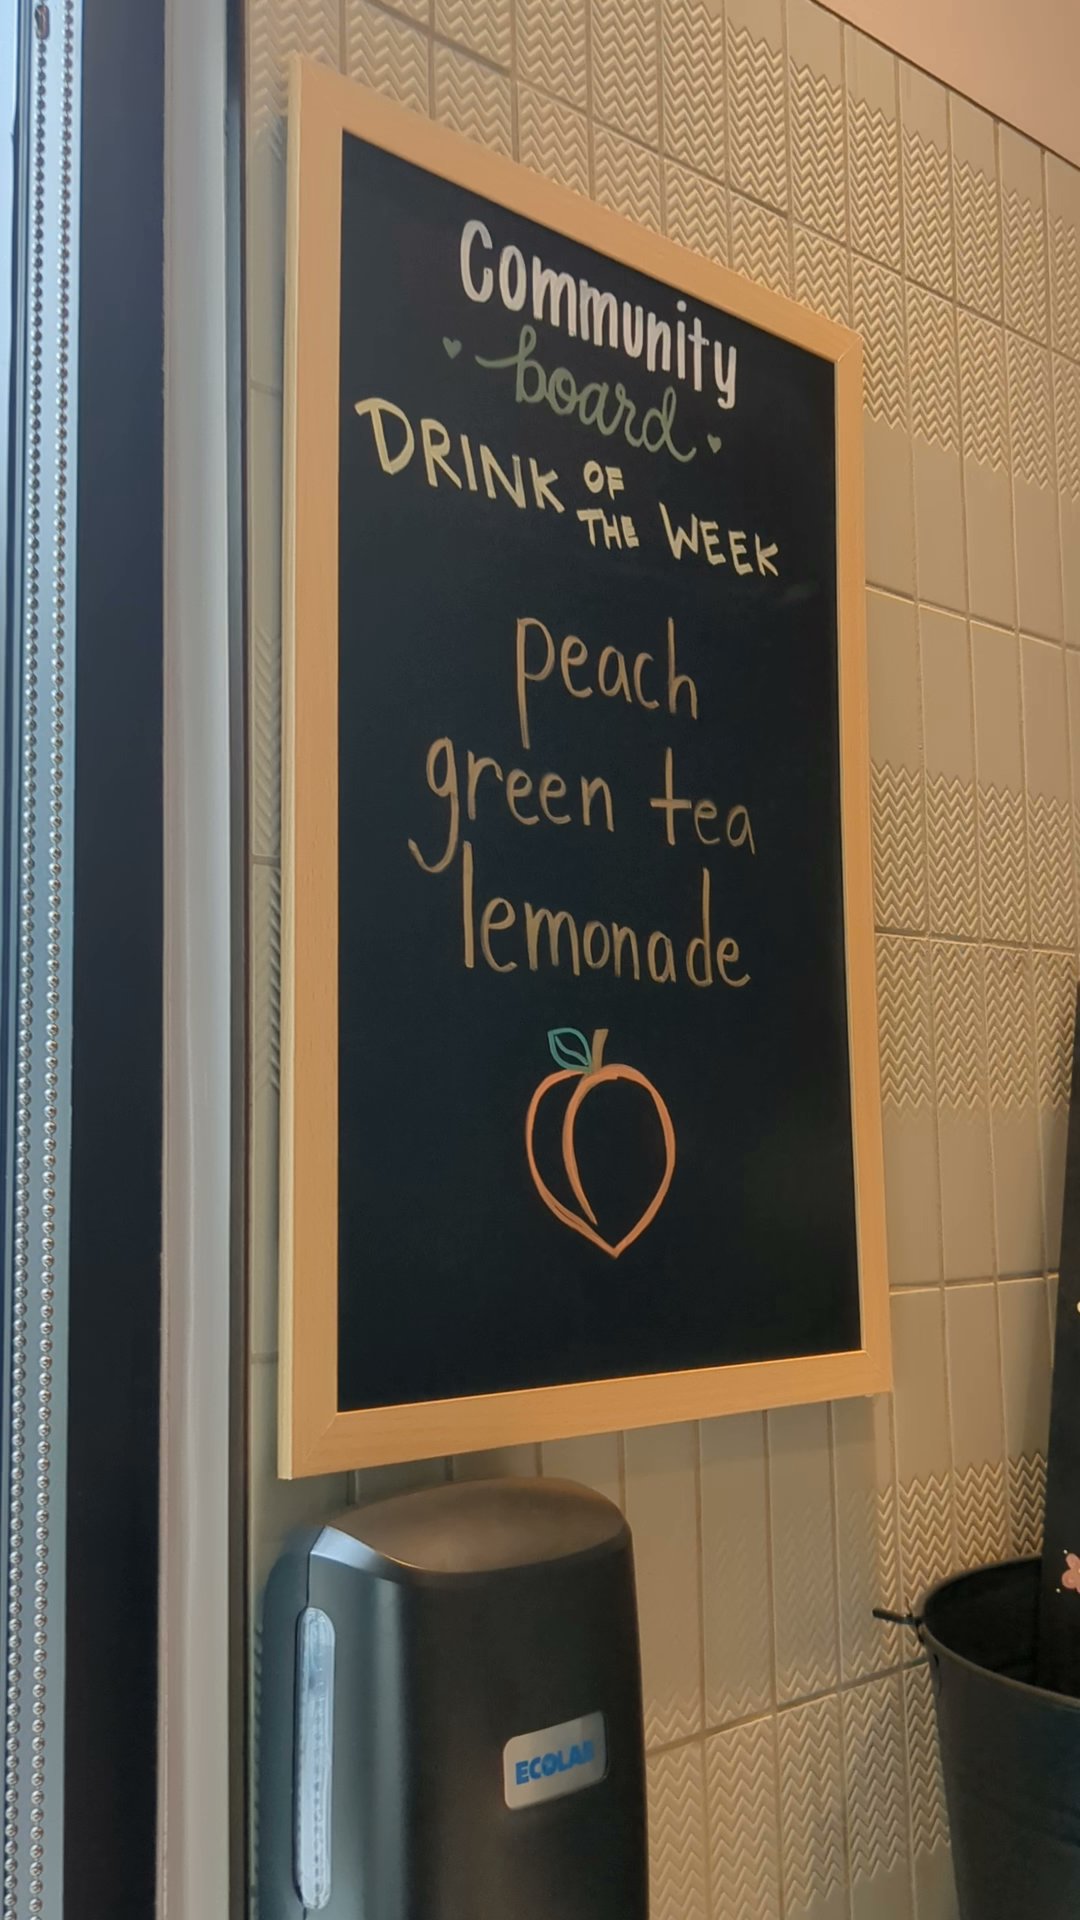 Community
board
DRINK OF THE WEEK
peach
green tea
lemonade
ECOLAB